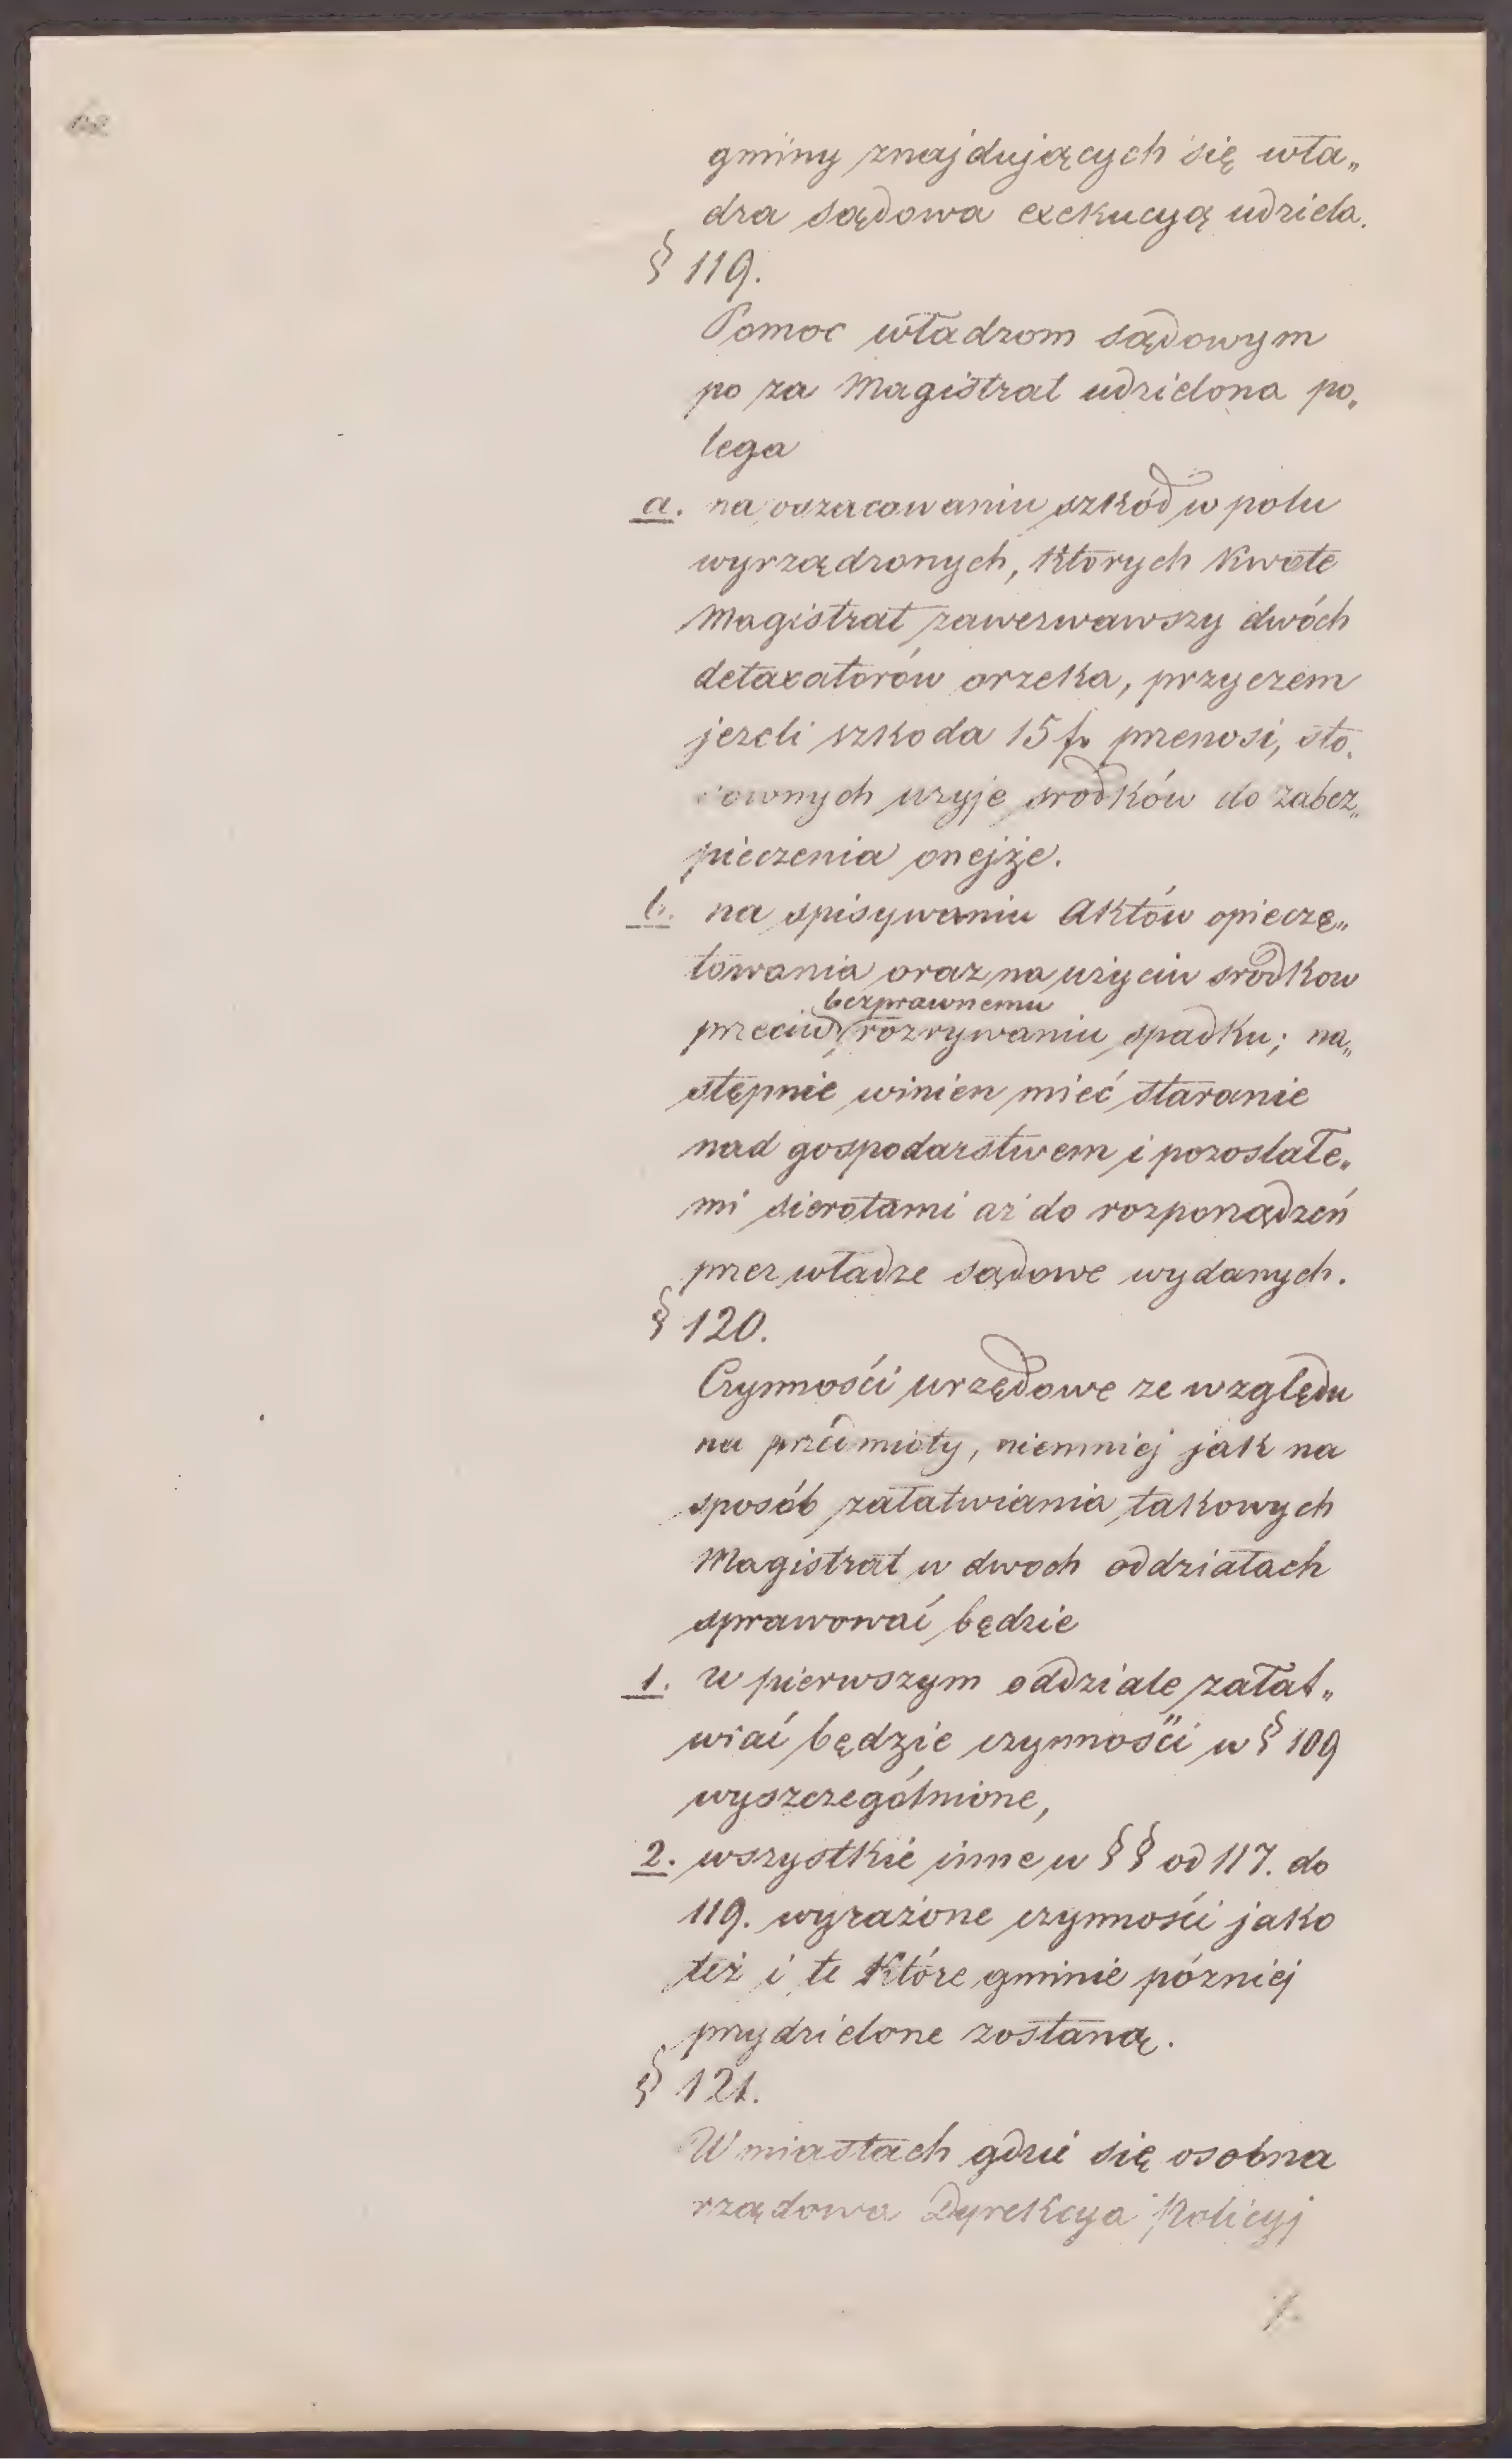 gminy znajdujących się wła„
dza sądowa exekucyą udziela.
§ 119.
Pomoc władzom sądowym
po za Magistrat udzielona po„
lega
a. na oszacowaniu szkód w polu
wyrządzonych, których kwotę
Magistrat zawezwawszy dwóch
detaxatorów orzeka, przyczem
jezeli szkoda 15 f. przenosi, sto„
sownych uzyje srodków do zabez„
pieczenia onejże.
b. na spisywaniu Aktów opieczę„
towania oraz na uzyciu srodkow
bezprawnemu
przeciw rozrywaniu spadku; na„
stępnie winien mieć staranie
nad gospodarstwem i pozostałe„
mi sierotami aż do rozporządzeń
przez władze sądowe wydanych.
§ 120.
Czynności urzędowe ze względu
na przedmioty, niemniej jak na
sposób załatwiania takowych
Magistrat w dwoch oddziałach
sprawować będzie
1. w pierwszym oddziale załat„
wiać będzie czynności w § 109
wyszczególnione,
2. wszystkie inne w § § od 117. do
119. wyrażone czynności jako
też i te które gminie pózniej
przydzielone zostaną.
§ 121.
W miastach gdzie się osobna
rządowa Dyrekcya Policyj